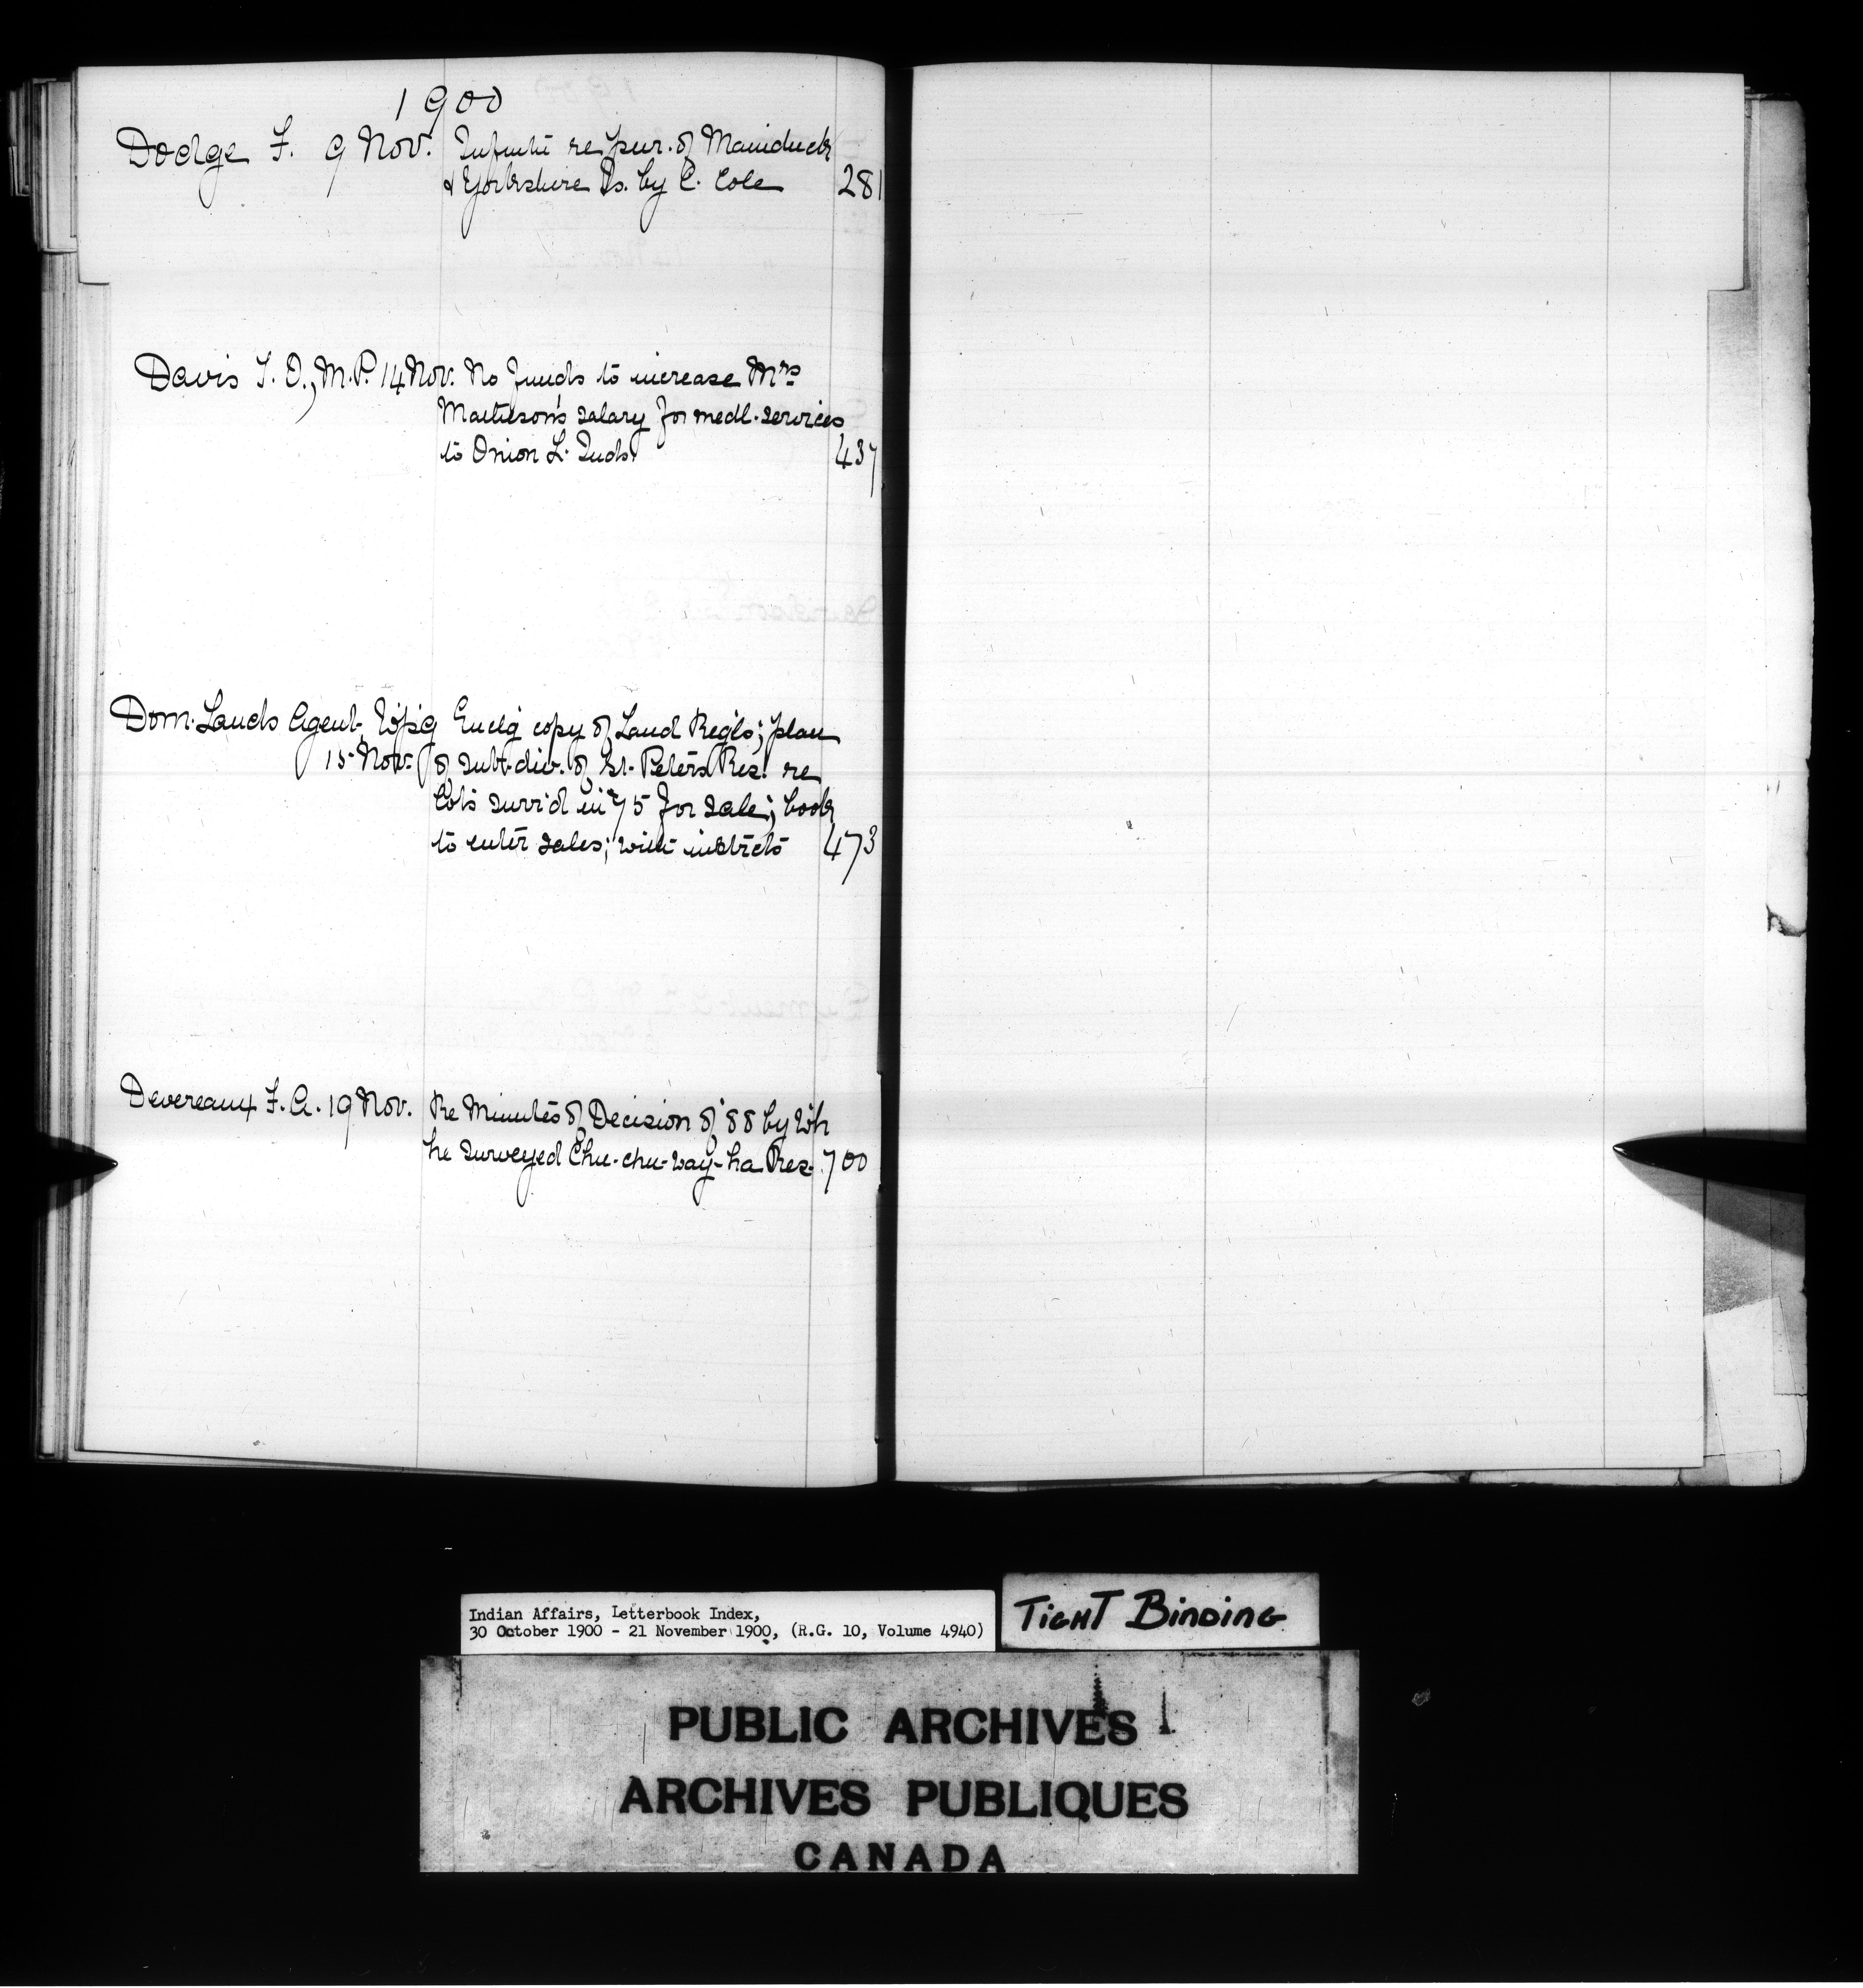 1900
Dodge F. 9 Nov. Infmtn re pur. of Mainduck
& Yorkshire Is. by C. Cole 281
Davis T. O., M.P. 14 Nov. No funds to increase Mrs
Matheson's salary for medl. services
to Onion L. Inds. 437
Dom. Lands Agent, Wpg Enclg copy of Land Regls; plan
15 Nov. of subdiv. of St. Peters Res. re
lots surv'd in '75 for sale; book
to enter sales; with instrcts 473
Devereaux F. A. 19 Nov. Re Minutes of Decision of '88 by wh
he surveyed Chu-chu-way-ha Res. 700
Indian Affairs, Letterbook Index,
30 October 1900 - 21 November 1900, (R.G. 10, Volume 4940)
TIGHT BINDING
PUBLIC ARCHIVES
ARCHIVES PUBLIQUES
CANADA